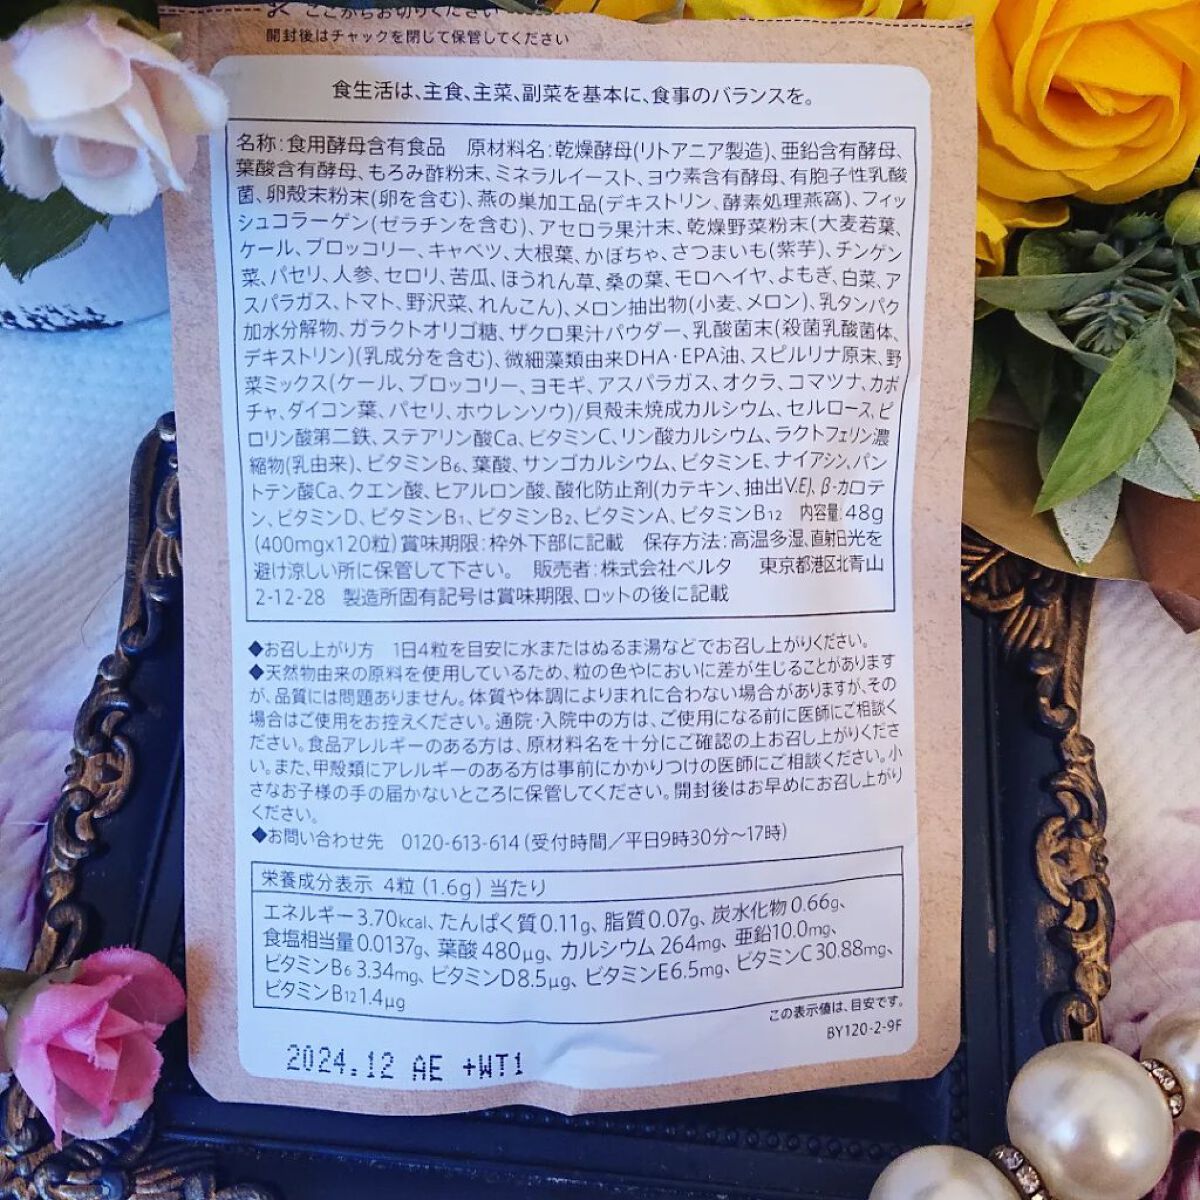 ここからお切りください
開封後はチャックを閉じて保管してください
食生活は、主食、主菜、副菜を基本に、食事のバランスを。
名称:食用酵母含有食品 原材料名:乾燥酵母(リトアニア製造)、亜鉛含有酵母、
葉酸含有酵母、もろみ酢粉末、ミネラルイースト、ヨウ素含有酵母、有胞子性乳酸
菌、卵殻末粉末(卵を含む)、燕の巣加工品(デキストリン、酵素処理燕窩)、フィッ
シュコラーゲン(ゼラチンを含む)、アセロラ果汁末、乾燥野菜粉末(大麦若葉、
ケール、ブロッコリー、キャベツ、大根葉、かぼちゃ、さつまいも(紫芋)、チンゲン
菜、パセリ、人参、セロリ、苦瓜、ほうれん草、桑の葉、モロヘイヤ、よもぎ、白菜、ア
スパラガス、トマト、野沢菜、れんこん)、メロン抽出物(小麦、メロン)、乳タンパク
加水分解物、ガラクトオリゴ糖、ザクロ果汁パウダー、乳酸菌末(殺菌乳酸菌体、
デキストリン)(乳成分を含む)、微細藻類由来DHA・EPA油、スピルリナ原末、野
菜ミックス(ケール、ブロッコリー、ヨモギ、アスパラガス、オクラ、コマツナ、カボ
チャ、ダイコン葉、パセリ、ホウレンソウ)/貝殻未焼成カルシウム、セルロース、ピ
ロリン酸第二鉄、ステアリン酸Ca、ビタミンC、リン酸カルシウム、ラクトフェリン濃
縮物(乳由来)、ビタミンB6、葉酸、サンゴカルシウム、ビタミンE、ナイアシン、パン
トテン酸Ca、クエン酸、ヒアルロン酸、酸化防止剤(カテキン、抽出V.E)、β-カロテ
ン、ビタミンD、ビタミンB1、ビタミンB2、ビタミンA、ビタミンB12 内容量:48g
(400mgx120粒)賞味期限:枠外下部に記載 保存方法:高温多湿、直射日光を
避け涼しい所に保管して下さい。 販売者:株式会社ベルタ 東京都港区北青山
2-12-28 製造所固有記号は賞味期限、ロットの後に記載
◆お召し上がり方 1日4粒を目安に水またはぬるま湯などでお召し上がりください。
◆天然物由来の原料を使用しているため、粒の色やにおいに差が生じることがあります
が、品質には問題ありません。体質や体調によりまれに合わない場合がありますが、その
場合はご使用をお控えください。通院・入院中の方は、ご使用になる前に医師にご相談く
ださい。食品アレルギーのある方は、原材料名を十分にご確認の上お召し上がりくださ
い。また、甲殻類にアレルギーのある方は事前にかかりつけの医師にご相談ください。小
さなお子様の手の届かないところに保管してください。開封後はお早めにお召し上がり
ください。
◆お問い合わせ先 0120-613-614(受付時間/平日9時30分〜17時)
栄養成分表示 4粒(1.6g)当たり
エネルギー3.70kcal、たんぱく質0.11g、脂質0.07g、炭水化物0.66g、
食塩相当量0.0137g、葉酸480μg、カルシウム264mg、亜鉛10.0mg、
ビタミンB6 3.34mg、ビタミンD8.5μg、ビタミンE6.5mg、ビタミンC30.88mg、
ビタミンB12 1.4μg
この表示値は、目安です。
BY120-2-9F
2024.12 AE +WT1